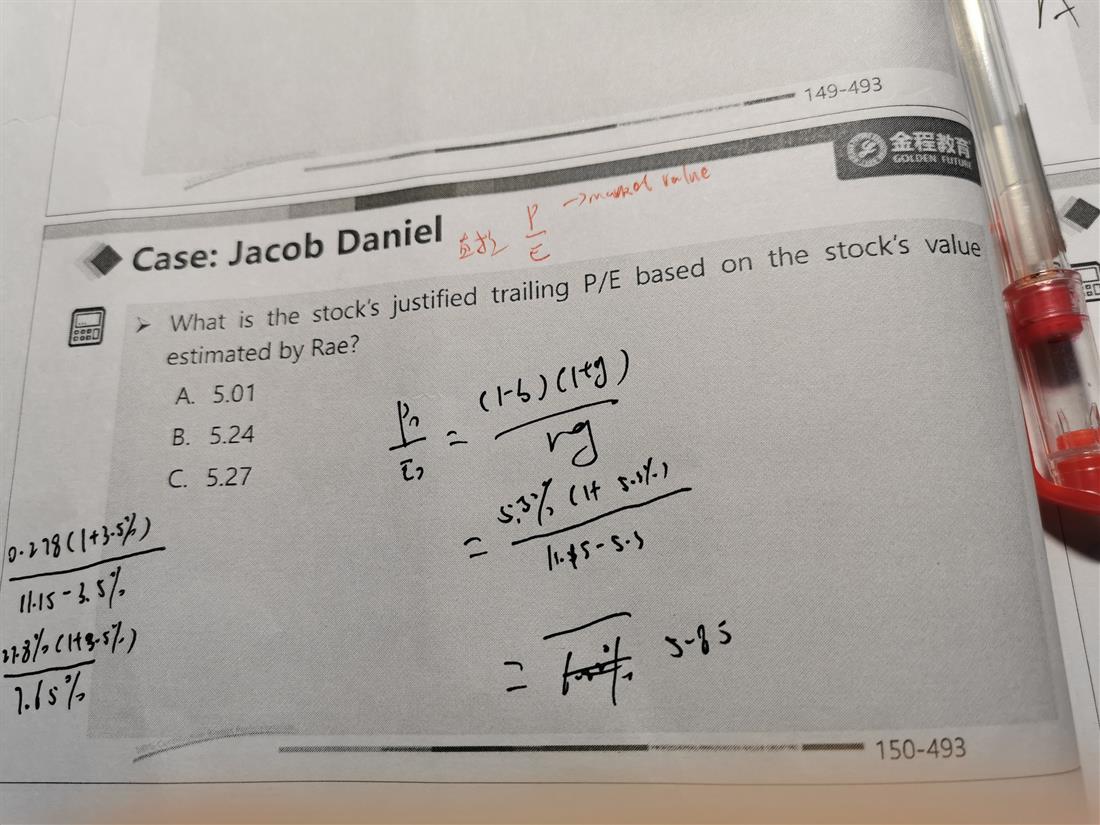 149-493
金程教育
GOLDEN FUTURE
Case: Jacob Daniel
P/E → market value
➢ What is the stock's justified trailing P/E based on the stock's value
estimated by Rae?
A. 5.01
B. 5.24
C. 5.27
P₀/E₀ = (1-b)(1+g)/rg
= 5.3% (1+ 5.5%)/
0.278(1+3.5%)/11.15-3.5%
27.8%(1+3.5%)/7.65%
= 5.85
150-493